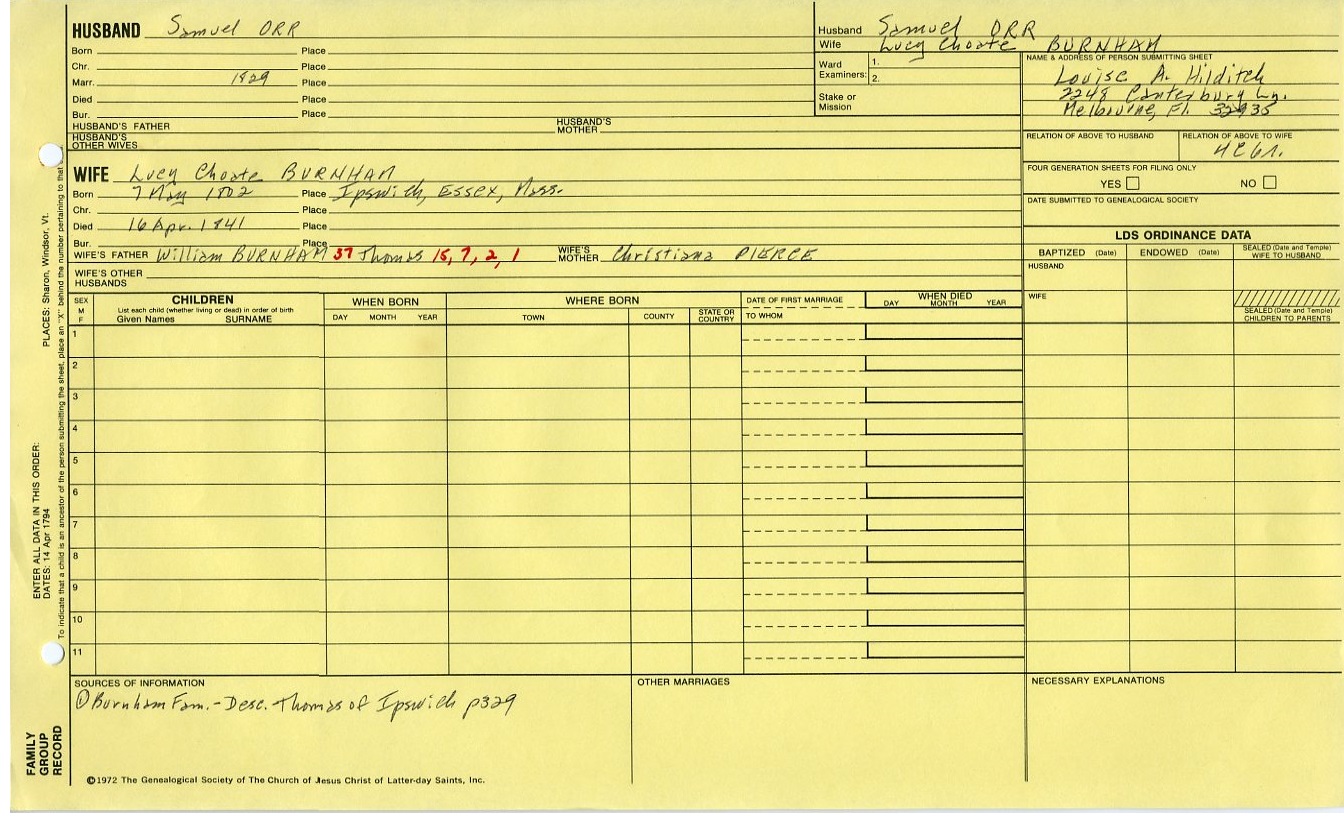 HUSBAND Samuel ORR
Born Place
Chr. Place
Marr. 1829 Place
Died Place
Bur. Place
HUSBAND'S FATHER HUSBAND'S MOTHER
HUSBAND'S OTHER WIVES
Husband Samuel ORR
Wife Lucy Choate BURNHAM
Ward Examiners: 1.
2.
Stake or Mission
NAME & ADDRESS OF PERSON SUBMITTING SHEET
Louise A. Hilditch
2248 Canterbury Ln.
Melbourne, Fl. 32935
RELATION OF ABOVE TO HUSBAND RELATION OF ABOVE TO WIFE
4C6r.
FOUR GENERATION SHEETS FOR FILING ONLY
YES NO
DATE SUBMITTED TO GENEALOGICAL SOCIETY
WIFE Lucy Choate BURNHAM
Born 7 May 1802 Place Ipswich, Essex, Mass.
Chr. Place
Died 16 Apr. 1841 Place
Bur. Place
WIFE'S FATHER William BURNHAM 37 Thomas 15, 7, 2, 1 WIFE'S MOTHER Christiana PIERCE
WIFE'S OTHER HUSBANDS
LDS ORDINANCE DATA
BAPTIZED (Date) ENDOWED (Date) SEALED (Date and Temple) WIFE TO HUSBAND
HUSBAND
WIFE
SEALED (Date and Temple) CHILDREN TO PARENTS
SEX M F
CHILDREN
List each child (whether living or dead) in order of birth
Given Names SURNAME
WHEN BORN
DAY MONTH YEAR
WHERE BORN
TOWN COUNTY STATE OR COUNTRY
DATE OF FIRST MARRIAGE
TO WHOM
WHEN DIED
DAY MONTH YEAR
1
2
3
4
5
6
7
8
9
10
11
SOURCES OF INFORMATION
① Burnham Fam. - Desc. Thomas of Ipswich p329
OTHER MARRIAGES
NECESSARY EXPLANATIONS
©1972 The Genealogical Society of The Church of Jesus Christ of Latter-day Saints, Inc.
FAMILY GROUP RECORD
ENTER ALL DATA IN THIS ORDER:
DATES: 14 Apr 1794
PLACES: Sharon, Windsor, Vt.
To indicate that a child is an ancestor of the person submitting the sheet, place an "X" behind the number pertaining to that